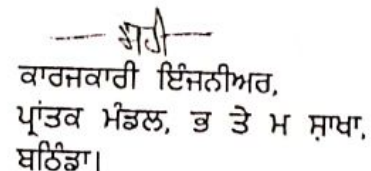 ਸਹੀ
ਕਾਰਜਕਾਰੀ ਇੰਜਨੀਅਰ,
ਪ੍ਰਾਂਤਕ ਮੰਡਲ, ਭ ਤੇ ਮ ਸ਼ਾਖਾ,
ਬਠਿੰਡਾ।